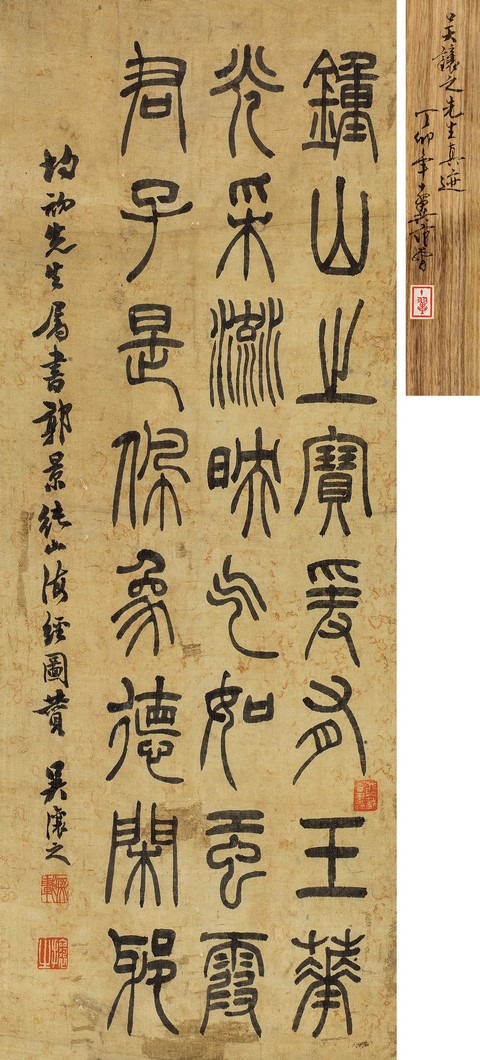 鍾山之寶爰有玉華
光采流映气如虹霞
君子是佩象德閑邪
均初先生屬書郭景純山海經圖贊 吳讓之
吴讓之先生真迹
丁卯年